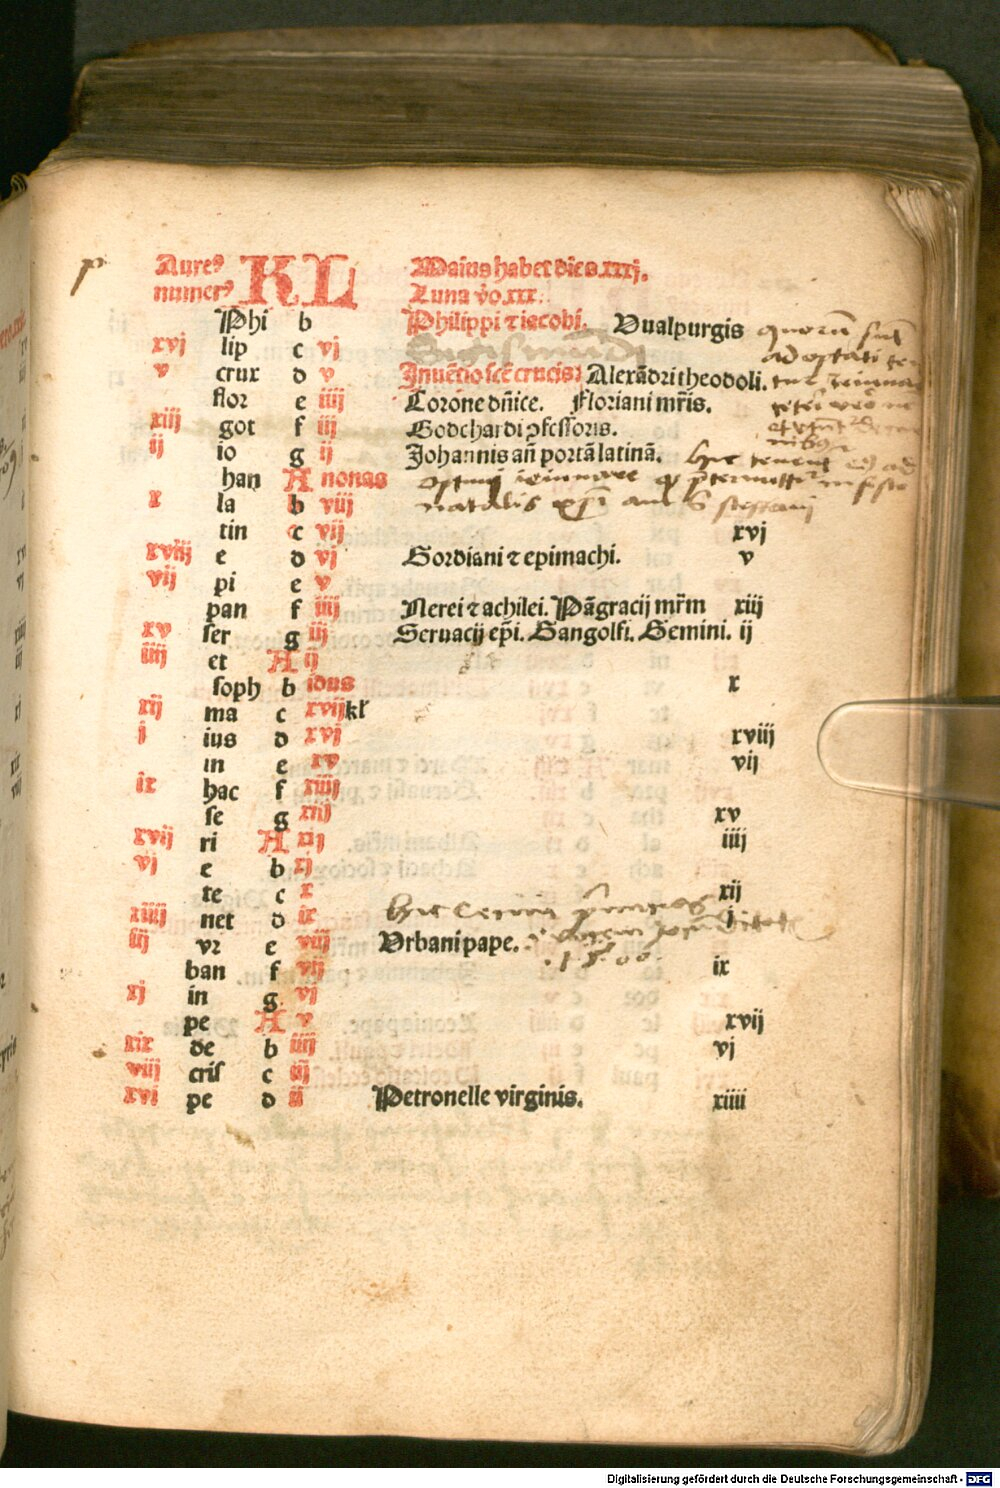 Aureꝰ KL Maius habet dies.xxxj.
numerꝰ Luna v̊o.xxx.
Phi b Philippi ⁊ iacobi. Vualpurgis
xvj lip c vj Sigismundi
v crux d v Inuẽcio scẽ crucis: Alexãdri theodoli.
flor e iiij Corone dñice. Floriani mr̃is.
xiij got f iij Godehardi ꝓfessoris.
ij io g ij Johannis añ portã latinã.
han A nonas
x la b viij
tin c vij xvj
xviij e d vj Gordiani ⁊ epimachi. v
vij pi e v
pan f iiij Nerei ⁊ achilei. Pãgracij mr̃m xiij
xv ser g iij Seruacij ep̃i. Gangolfi. Gemini. ij
iiij et A ij
soph b idus x
xij ma c xvij kł
j ius d xvj xviij
in e xv vij
ix hac f xiiij
se g xiij xv
xvij ri A xij iiij
vj e b xj
te c x xij
xiiij net d ix j
iij vr e viij Vrbani pape.
ban f vij ix
xj in g vj
pe A v xvij
xix de b iiij vj
viij cris c iij
xvj pe d ij Petronelle virginis. xiiii
Digitalisierung gefördert durch die Deutsche Forschungsgemeinschaft - DFG